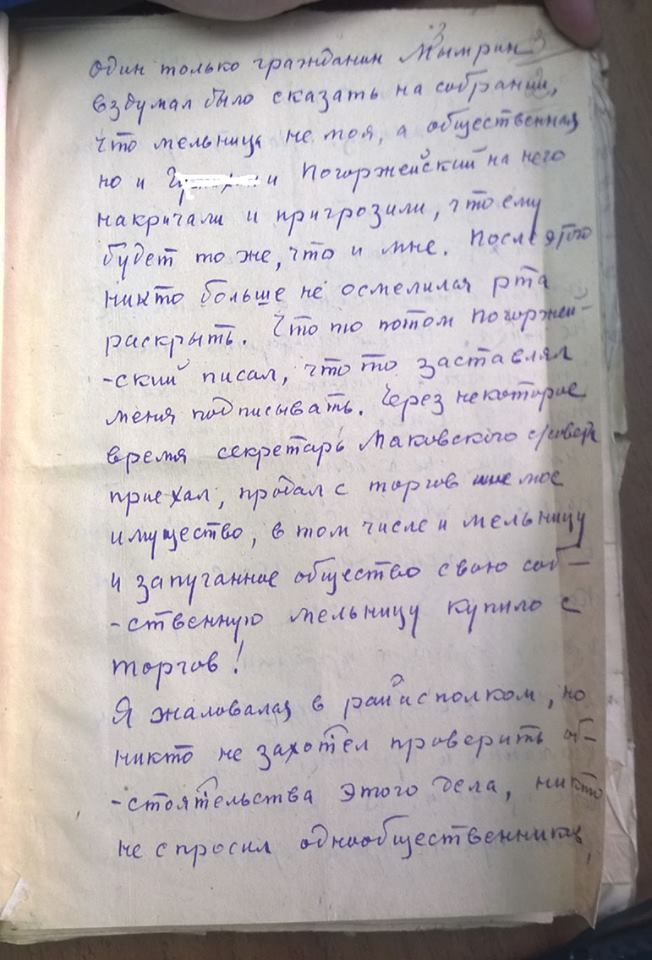 один только гражданин Мымрин
вздумал было сказать на собрании,
что мельница не моя, а общественная
но и и Погоржейский на него
накричали и пригрозили, что ему
будет то же, что и мне. После этого
никто больше не осмелился рта
раскрыть. Что то потом Погоржей-
-ский писал, что то заставлял
меня подписывать. Через некоторое
время секретарь Маковского с/совета
приехал, продал с торгов мое
имущество, в том числе и мельницу
и запуганное общество свою соб-
-ственную мельницу купило с
торгов!
Я жаловалась в райисполком, но
никто не захотел проверить об-
-стоятельства этого дела, никто
не спросил однообщественников,